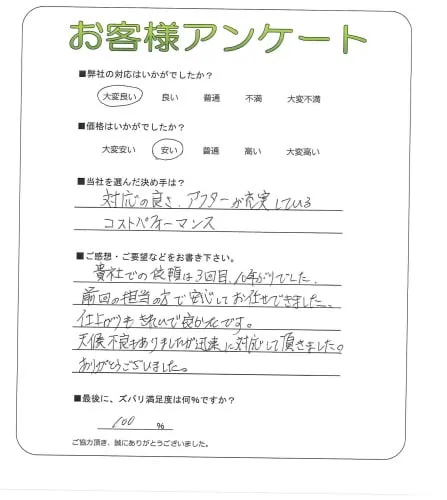 お客様アンケート
■弊社の対応はいかがでしたか?
大変良い 良い 普通 不満 大変不満
■価格はいかがでしたか?
大変安い 安い 普通 高い 大変高い
■当社を選んだ決め手は?
対応の良さ、アフターが充実している
コストパフォーマンス
■ご感想・ご要望などをお書き下さい。
貴社での依頼は3回目、10年ぶりでした。
前回の担当の方で安心してお任せできました。
仕上がりもきれいで良かったです。
天候不良もありましたが迅速に対応して頂きました。
ありがとうございました。
■最後に、ズバリ満足度は何%ですか?
100 %
ご協力頂き、誠にありがとうございました。